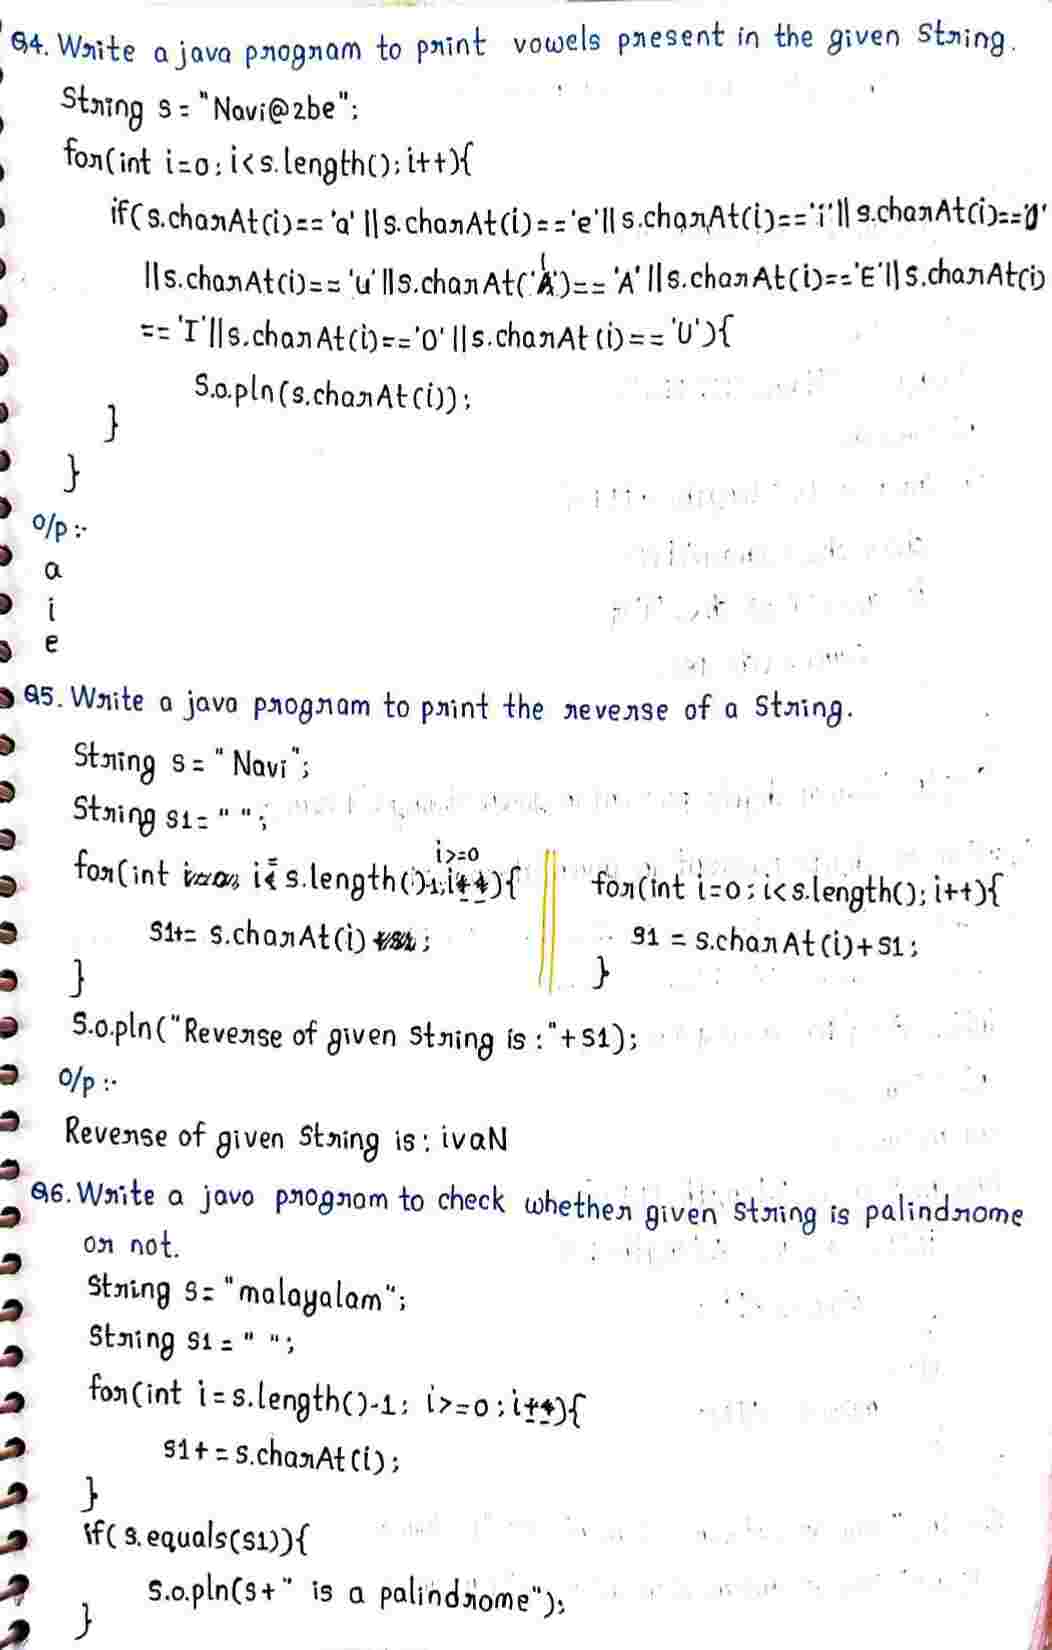 Q4. Write a java program to print vowels present in the given String.
String s = "Navi@2be";
for(int i=0; i<s.length(); i++){
if(s.charAt(i)=='a' || s.charAt(i)=='e' || s.charAt(i)=='i' || s.charAt(i)=='o'
|| s.charAt(i)=='u' || s.charAt(i)=='A' || s.charAt(i)=='E' || s.charAt(i)
=='I' || s.charAt(i)=='O' || s.charAt(i)=='U'){
S.o.pln(s.charAt(i));
}
}
O/p :-
a
i
e
Q5. Write a java program to print the reverse of a String.
String s = "Navi";
String s1 = " ";
for(int i= s.length()-1; i>=0 i--){
s1+= s.charAt(i);
}
for(int i=0; i<s.length(); i++){
s1 = s.charAt(i)+s1;
}
S.o.pln("Reverse of given String is : "+s1);
O/p :-
Reverse of given String is : ivaN
Q6. Write a java program to check whether given String is palindrome
or not.
String s = "malayalam";
String s1 = " ";
for(int i=s.length()-1; i>=0; i--){
s1+=s.charAt(i);
}
if(s.equals(s1)){
S.o.pln(s+" is a palindrome");
}